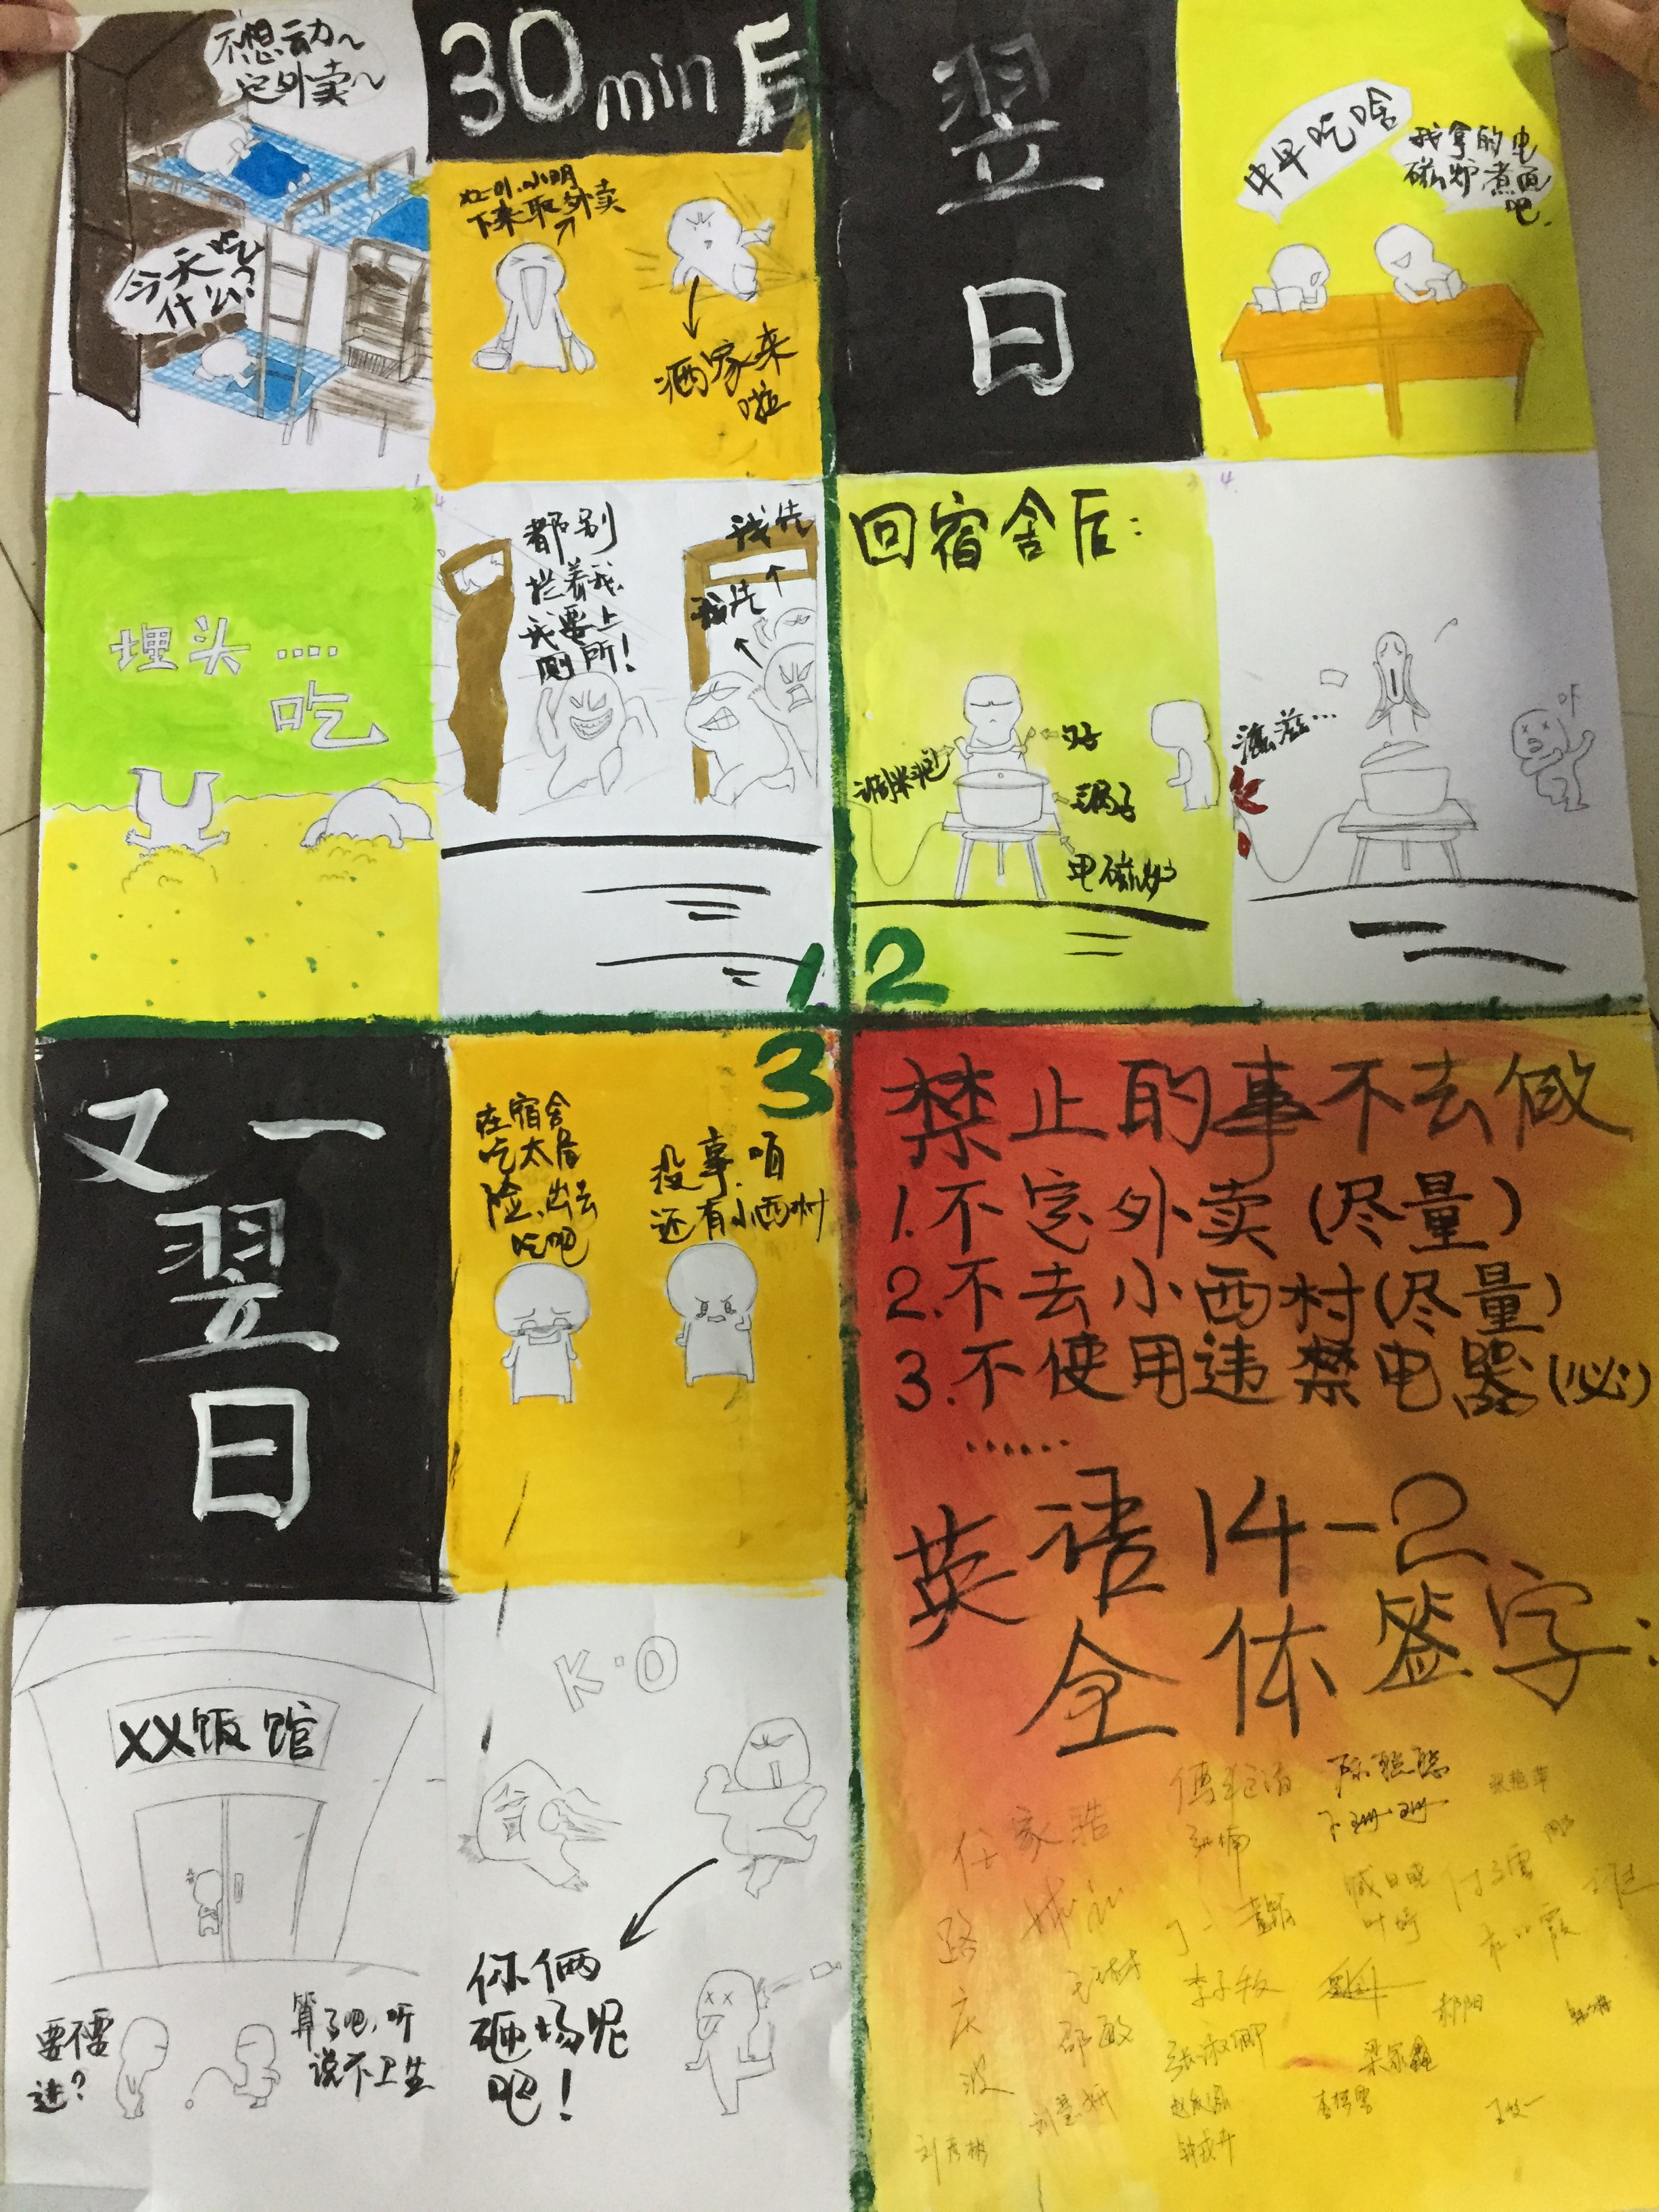 不想动~
定外卖~
今天吃
什么?
30min后
X2-01.小明
下来取外卖
洒家来
啦
埋头……
吃
都别
拦着我,
我要上
厕所!
我先
我先
1
翌
日
中早吃啥
我拿的电
磁炉煮面
吧.
回宿舍后:
调料包
勺子
锅子
电磁炉
滋滋…
咔
2
又一
翌
日
3
在宿舍
吃太危
险,出去
吃吧
没事.咱
还有小西村
XX饭馆
要不要
进?
算了吧,听
说不卫生
K·O
你俩
砸场呢
吧!
禁止的事不去做
1.不定外卖(尽量)
2.不去小西村(尽量)
3.不使用违禁电器(必)
……
英语14-2
全体签字:
任家浩
张楠
丁一
李子牧
邵敏
张淑卿
叶婷
郝阳
梁家鑫
路庆波
刘彦彬